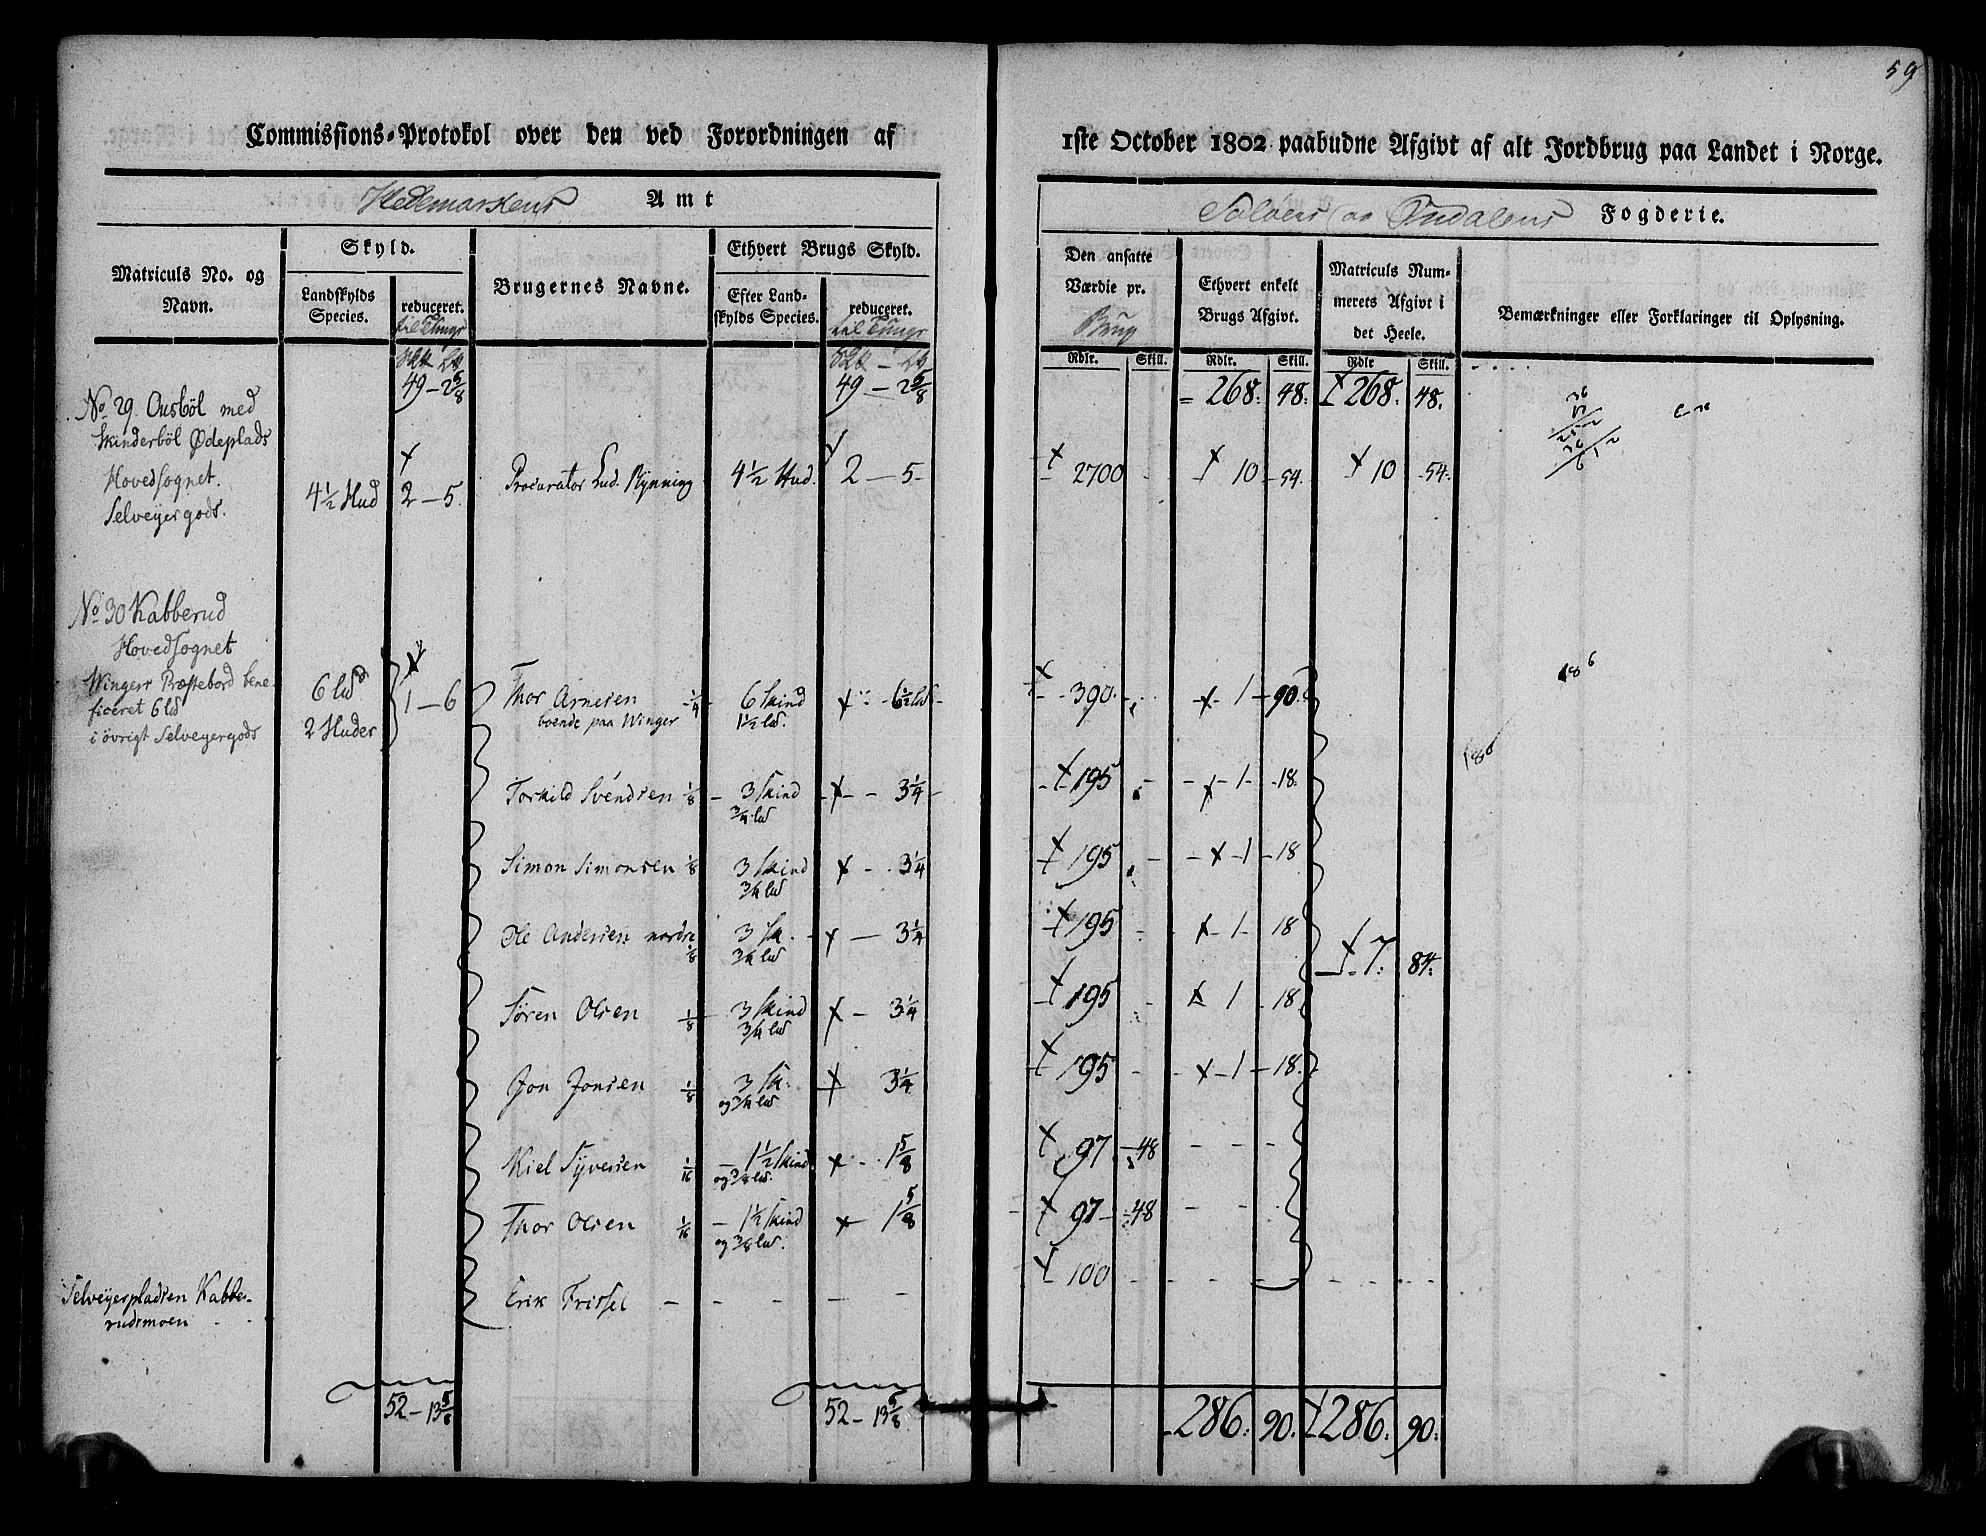 59
Commissions-Protokol over den ved Forordningen af
1ste October 1802 paabudne Afgivt af alt Jordbrug paa Landet i Norge.
Hedemarkens Amt
Soløers og Oudalens Fogderie.
Matriculs No. og Navn.
Skyld.
Landskylds Species.
reduceret. til Tunge
Brugernes Navne.
Ethvert Brugs Skyld.
Efter Landskylds Species.
reduceret. til Tunge
Den ansatte Værdie pr. Brug
Rdlr. Skill.
Ethvert enkelt Brugs Afgivt.
Rdlr. Skill.
Matriculs Nummerets Afgivt i det Heele.
Rdlr Skill.
Bemærkninger eller Forklaringer til Oplysning.
49 – 2 5/8 49 – 2 5/8 268: 48: 268: 48.
No 29. Ousböl med
Skinderböl Ødeplads
Hovedsognet.
Selveyergods.
4½ Hud 2 – 5. Procurator Lud. Rynning 4½ Hud. 2 – 5 2700 10 – 54. 10 54.
No 30 Kabberud
Hovedsognet
Wingers Præstebord bene-
ficeret 6 ld
i övrigt Selveyergods
6 ld
2 Huder
1 – 6
Thor Arnesen ¼ 6 Skind 6½ ld 390. 1 – 90.
boende paa Winger 1½ ld.
Torkild Svendsen ⅛ 3 Skind 3¼ 195 1 – 18.
¾ ld
Simon Simonsen ⅛ 3 Skind 3¼ 195 1 – 18
¾ ld
Ole Andersen nordre ⅛ 3 Sk. 3¼ 195 1 – 18
¾ ld
7: 84:
Sören Olsen ⅛ 3 Skind 3¼ 195 1 – 18
¾ ld
Jon Jonsen ⅛ 3 Sk. 3¼ 195 1 – 18
og ¾ ld
Kiel Syversen 1/16 1½ Skind 1 5/8 97 – 48
og ⅜ ld.
Thor Olsen 1/16 1½ Skind 1 5/8 97 – 48
og ⅜ ld.
Selveyerpladsen Kabbe-
rudsmoen
Erik Frissel 100
52 – 13 5/8 52 – 13 5/8 286: 90: 286: 90: